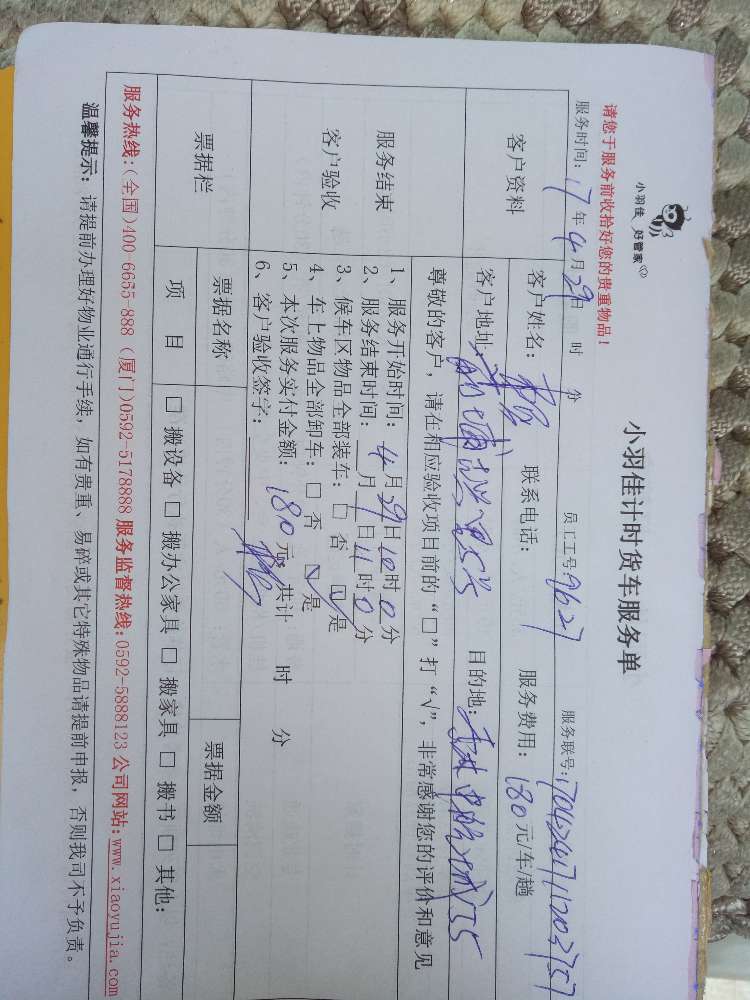 小羽佳 好管家
小羽佳计时货车服务单
请您于服务前收拾好您的贵重物品！
服务时间：17年4月29日 时 分 员工工号：9627 服务联号：
客户资料
客户姓名： 联系电话： 服务费用：180元/车/趟
客户地址： 目的地：
尊敬的客户，请在相应验收项目前的“□”打“√”，非常感谢您的评价和意见
服务结束
客户验收
1、服务开始时间：4月29日10时0分
2、服务结束时间： 月 日11时0分
3、候车区物品全部装车：□ 否 ☑ 是
4、车上物品全部卸车：□ 否 ☑ 是
5、本次服务实付金额：180元，共计 时 分
6、客户验收签字：
票据栏
票据名称 票据金额
项 目 □ 搬设备 □ 搬办公家具 □ 搬家具 □ 搬书 □ 其他：
服务热线：(全国)400-6655-888 (厦门)0592-5178888 服务监督热线：0592-5888123 公司网站：www.xiaoyujia.com
温馨提示：请提前办理好物业通行手续，如有贵重、易碎或其它特殊物品请提前申报，否则我司不予负责。